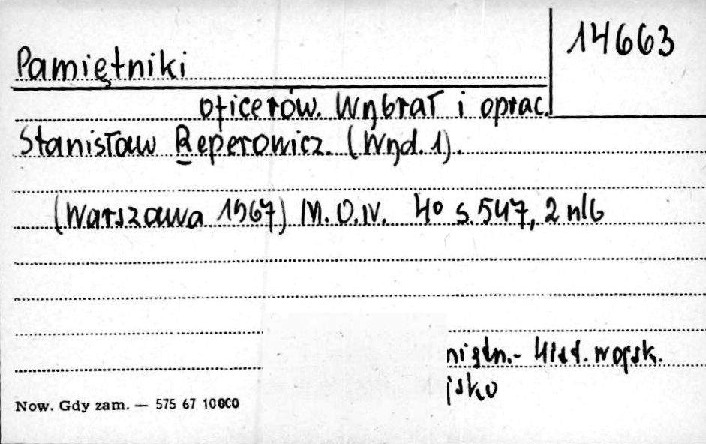 14663
Pamiętniki
oficerów. Wybrał i oprac.
Stanisław Reperowicz. (Wyd. 1).
(Warszawa 1967) M.O.N. 4° s. 547, 2 nlb
Hist. wojsk.
Now. Gdy zam. — 575 67 10000